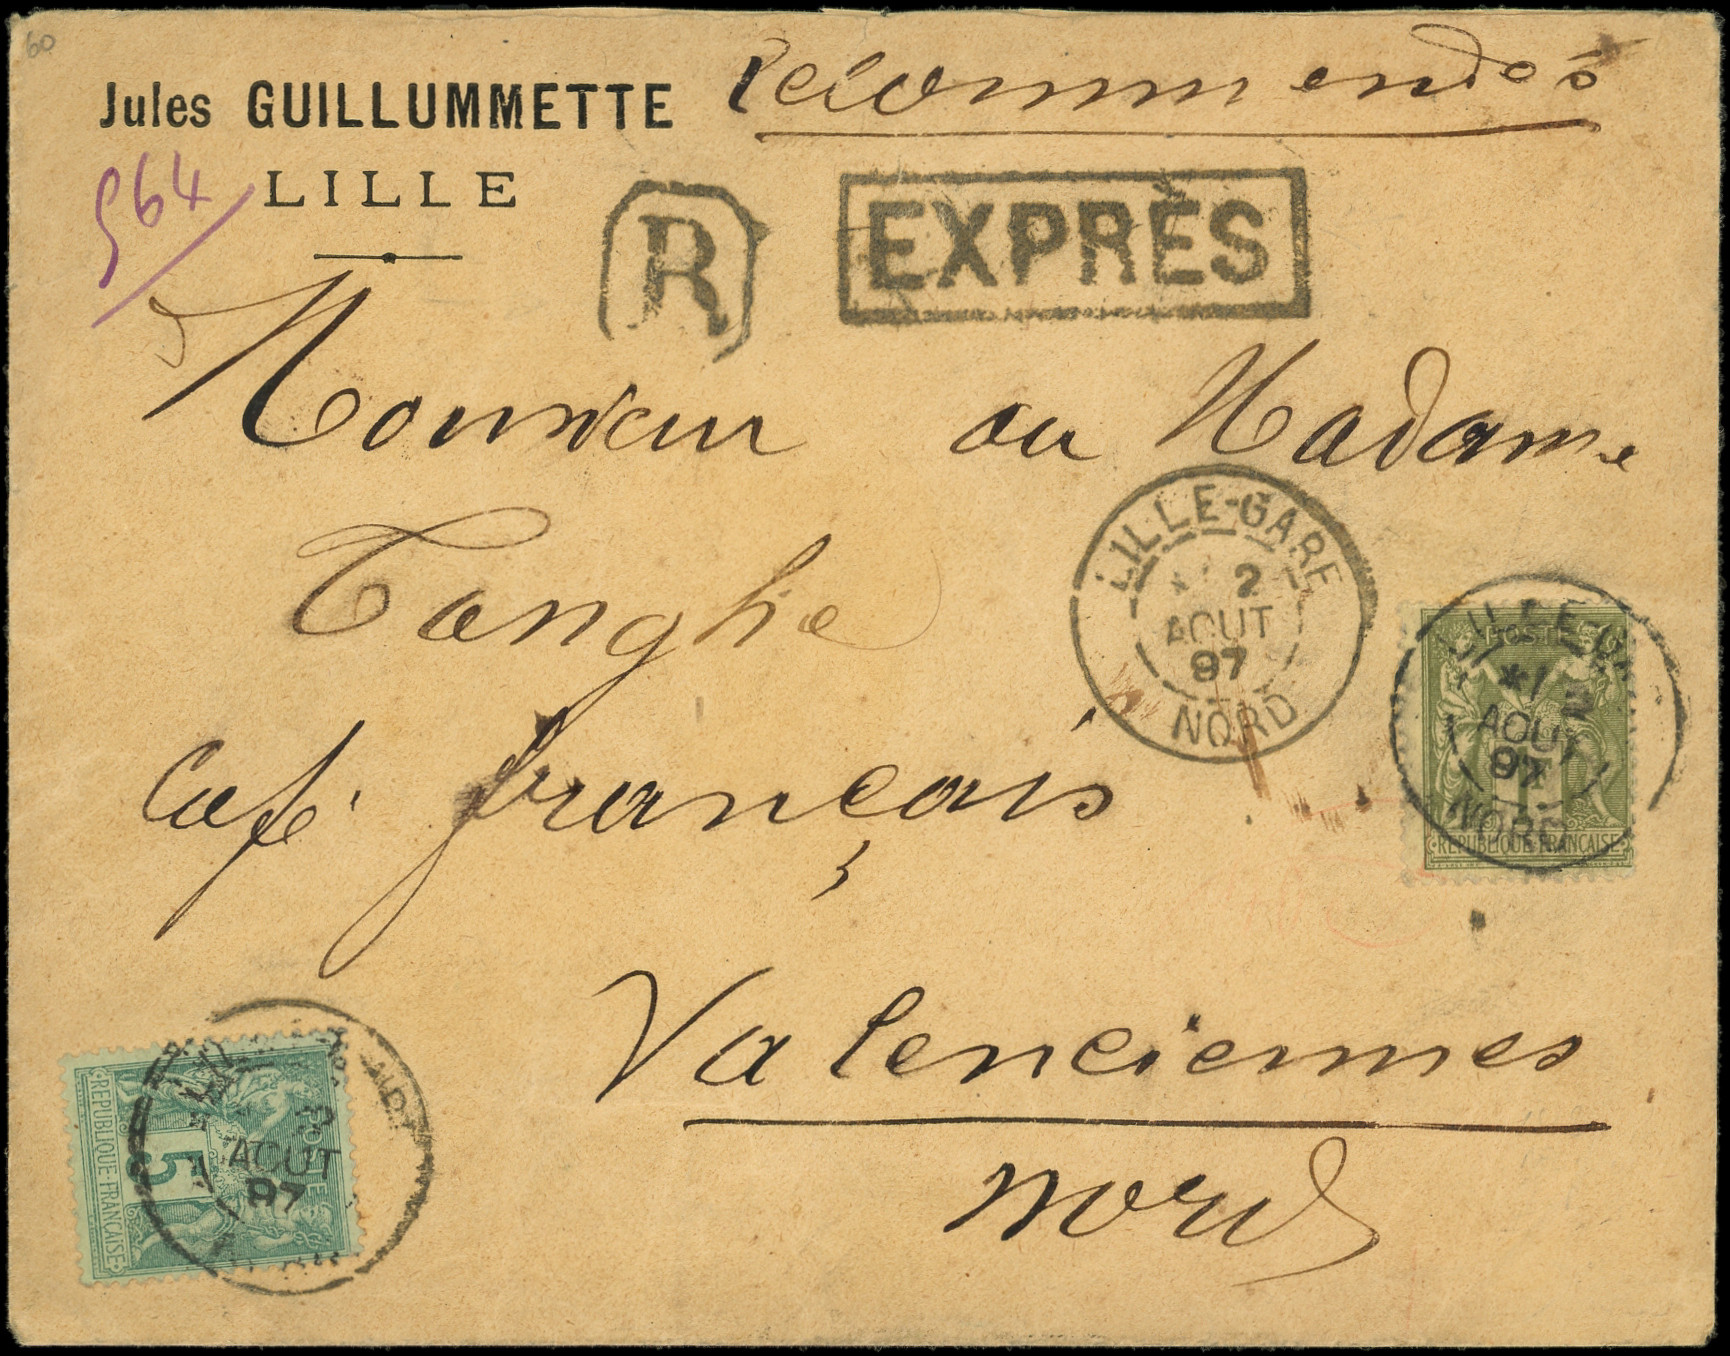 60
Jules GUILLUMMETTE
Recommandée
964
LILLE
R
EXPRÈS
Monsieur ou Madame
Tanghe
LILLE-GARE
2
AOUT
97
NORD
POSTE
LILLE-GARE
2
AOUT
97
NORD
1
REPUBLIQUE FRANÇAISE
Café français
Valenciennes
Nord
POSTE
5
REPUBLIQUE FRANÇAISE
AOUT
97